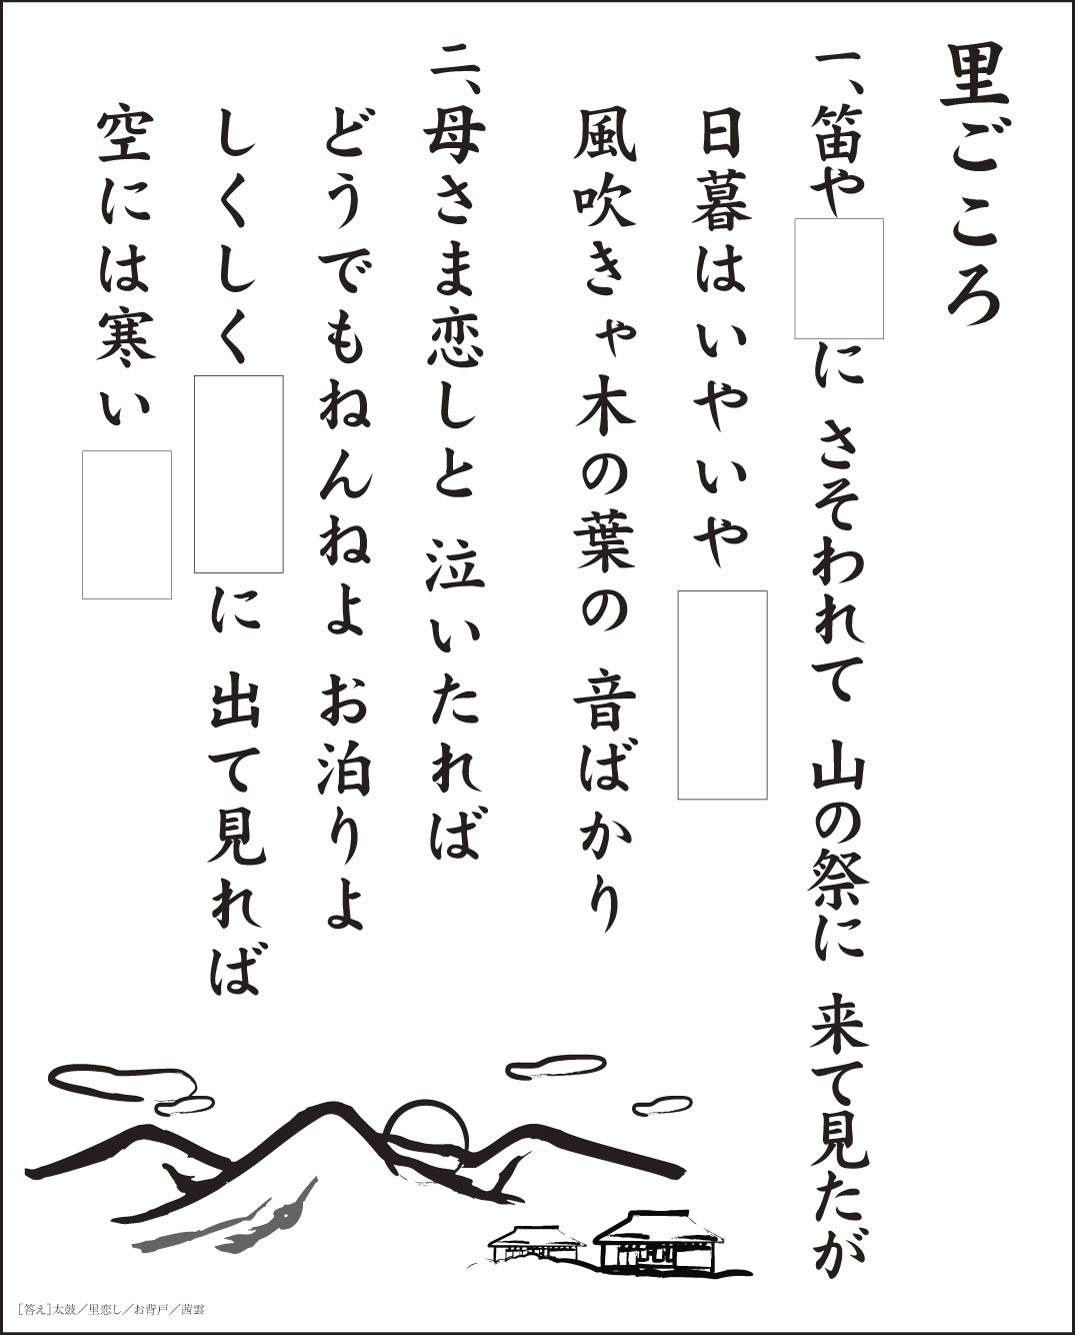 里ごころ
一、笛や　　に さそわれて 山の祭に 来て見たが
日暮はいやいや
風吹きゃ木の葉の 音ばかり
二、母さま恋しと 泣いたれば
どうでもねんねよ お泊りよ
しくしく　　に 出て見れば
空には寒い
［答え］太鼓／里恋し／お背戸／茜雲